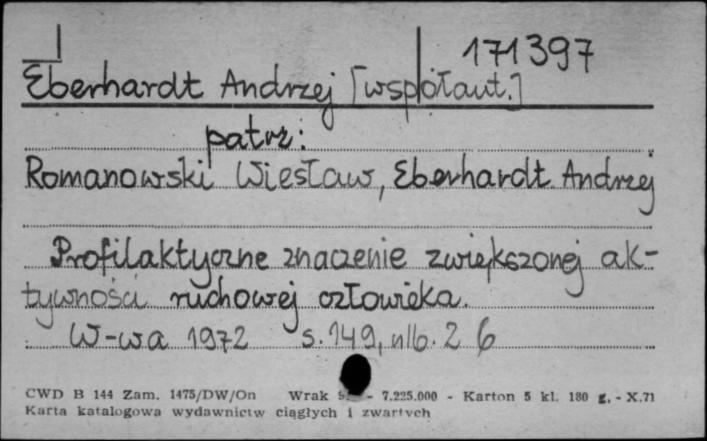 171397
Eberhardt Andrzej [współaut.]
patrz:
Romanowski Wiesław, Eberhardt Andrzej
Profilaktyczne znaczenie zwiększonej ak-
tywności ruchowej człowieka.
W-wa 1972 s. 149, nlb. 2 6
CWD B 144 Zam. 1475/DW/On Wrak - 7.225.000 - Karton 5 kl. 180 g. - X.71
Karta katalogowa wydawnictw ciągłych i zwartych